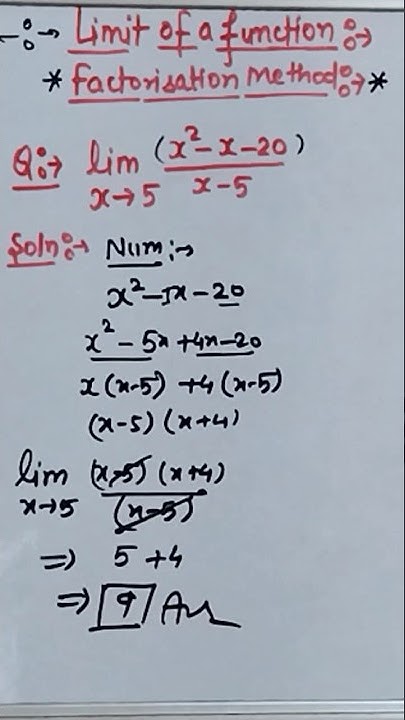 -:→ Limit of a function :→
* Factorisation Method :→ *
Q:→ lim x→5 (x²-x-20) / x-5
Soln:→ Num:→
x²-1x-20
x²-5x+4x-20
x(x-5)+4(x-5)
(x-5)(x+4)
lim x→5 (x-5)(x+4) / (x-5)
⇒ 5+4
⇒ 9 Ans